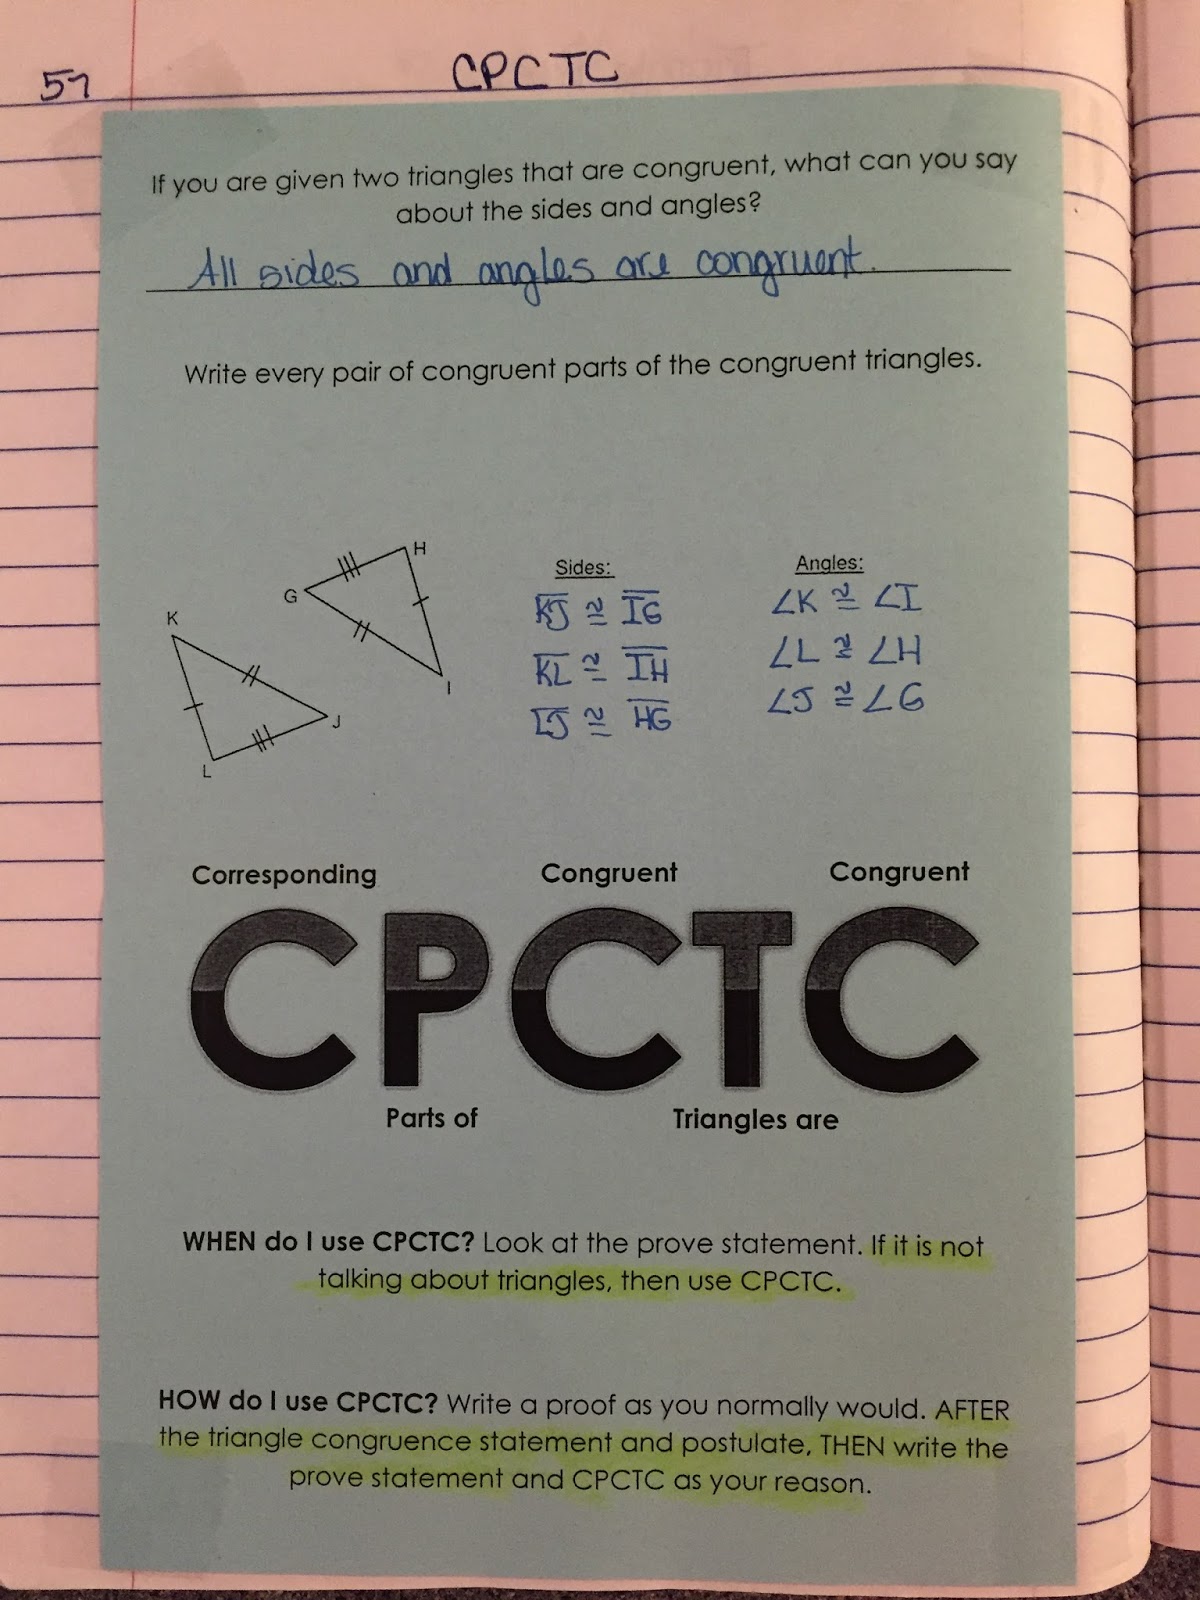 57
CPCTC
If you are given two triangles that are congruent, what can you say
about the sides and angles?
All sides and angles are congruent.
Write every pair of congruent parts of the congruent triangles.
H
G
K
I
J
L
Sides:
K̅J̅ ≅ I̅G̅
K̅L̅ ≅ I̅H̅
L̅J̅ ≅ H̅G̅
Angles:
∠K ≅ ∠I
∠L ≅ ∠H
∠J ≅ ∠G
Corresponding Congruent Congruent
CPCTC
Parts of Triangles are
WHEN do I use CPCTC? Look at the prove statement. If it is not
talking about triangles, then use CPCTC.
HOW do I use CPCTC? Write a proof as you normally would. AFTER
the triangle congruence statement and postulate, THEN write the
prove statement and CPCTC as your reason.